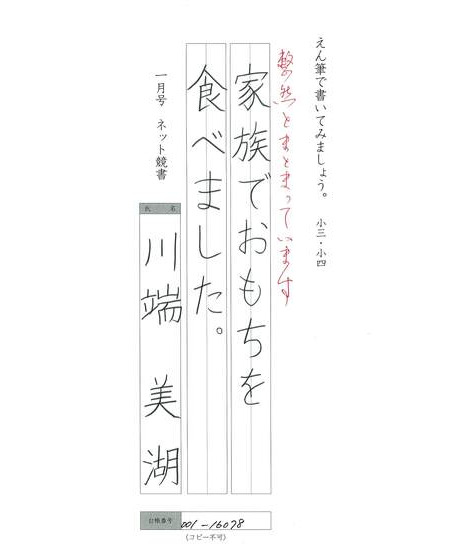 えん筆で書いてみましょう。 小三・小四
整然とまとまっています
家族でおもちを
食べました。
一月号 ネット競書
氏 名
川端 美湖
台帳番号 001-16078
(コピー不可)